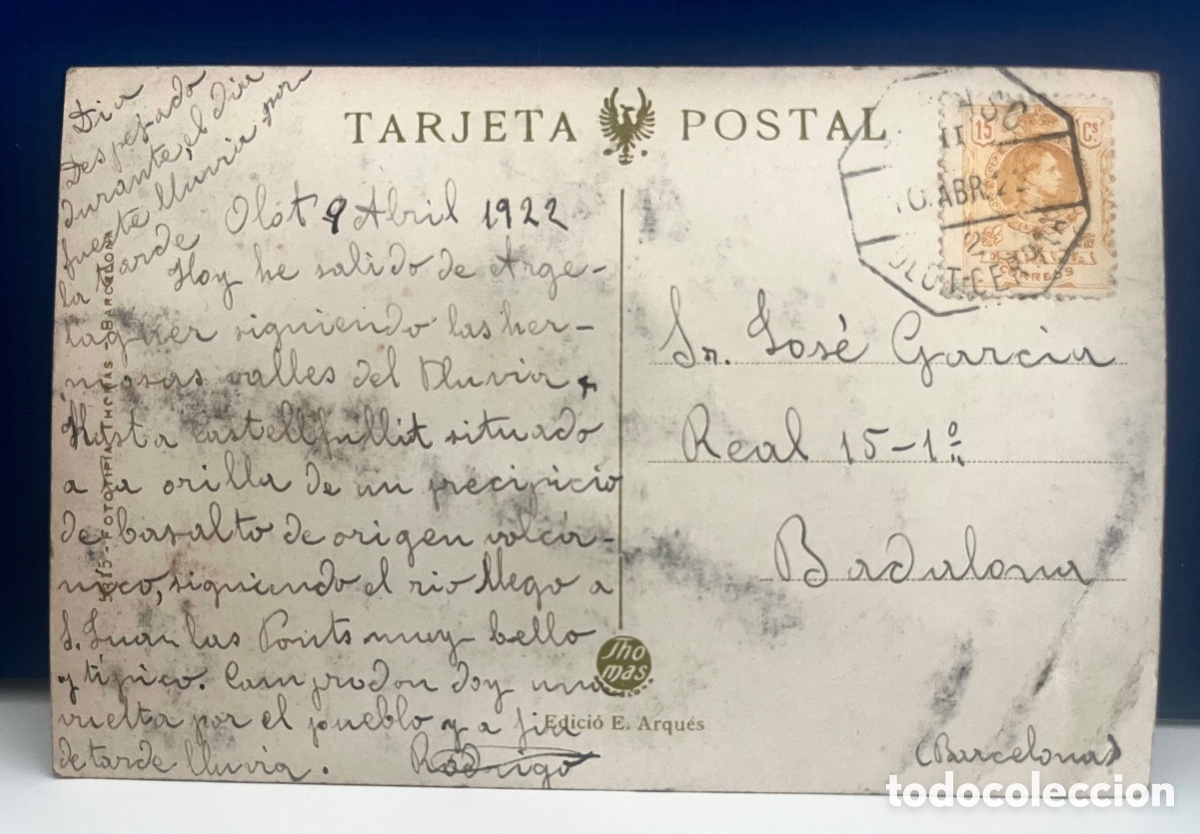 TARJETA POSTAL
Dia
Despejado
durante, el dia
fuerte lluvia por
la tarde
Olot 9 Abril 1922
Hoy he salido de Arge-
laguer siguiendo las her-
mosas valles del Fluvia,
Hasta Castellfullit situado
a la orilla de un precipicio
de basalto de origen volcá-
nico, siguiendo el rio llego a
S. Juan las Fonts muy bello
y típico. Camprodon doy una
vuelta por el pueblo y a fin
de tarde lluvia. Rodrigo
FOTOTIPIA THOMAS - BARCELONA
Thomas
Edició E. Arqués
15 Cs
CORREOS
10. ABR. 22
OLOT-GERONA
Sr. José Garcia
Real 15-1º
Badalona
(Barcelona)
todocoleccion